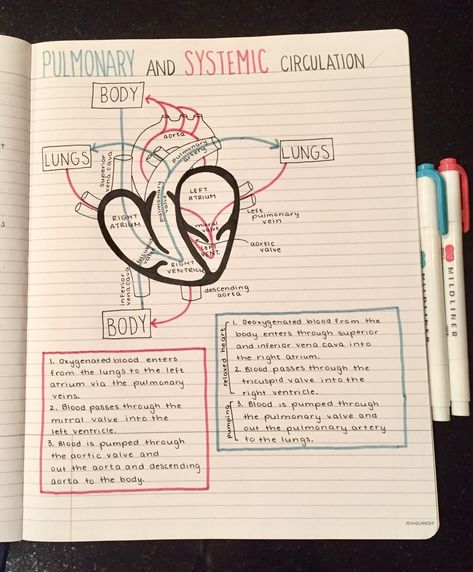 PULMONARY AND SYSTEMIC CIRCULATION
BODY
LUNGS
LUNGS
aorta
pulmonary artery
superior vena cava
pulmonary valve
LEFT ATRIUM
RIGHT ATRIUM
left pulmonary vein
mitral valve
LEFT VENT.
aortic valve
tricuspid valve
RIGHT VENTRICLE
inferior vena cava
descending aorta
BODY
1. Oxygenated blood enters
from the lungs to the left
atrium via the pulmonary
veins.
2. Blood passes through the
mitral valve into the
left ventricle.
3. Blood is pumped through
the aortic valve and
out the aorta and descending
aorta to the body.
relaxed heart
1. Deoxygenated blood from the
body enters through superior
and inferior vena cava into
the right atrium.
2. Blood passes through the
tricuspid valve into the
right ventricle.
pumping
3. Blood is pumped through
the pulmonary valve and
out the pulmonary artery
to the lungs.
AT-A-GLANCE
MILDLINER
MILDLINER